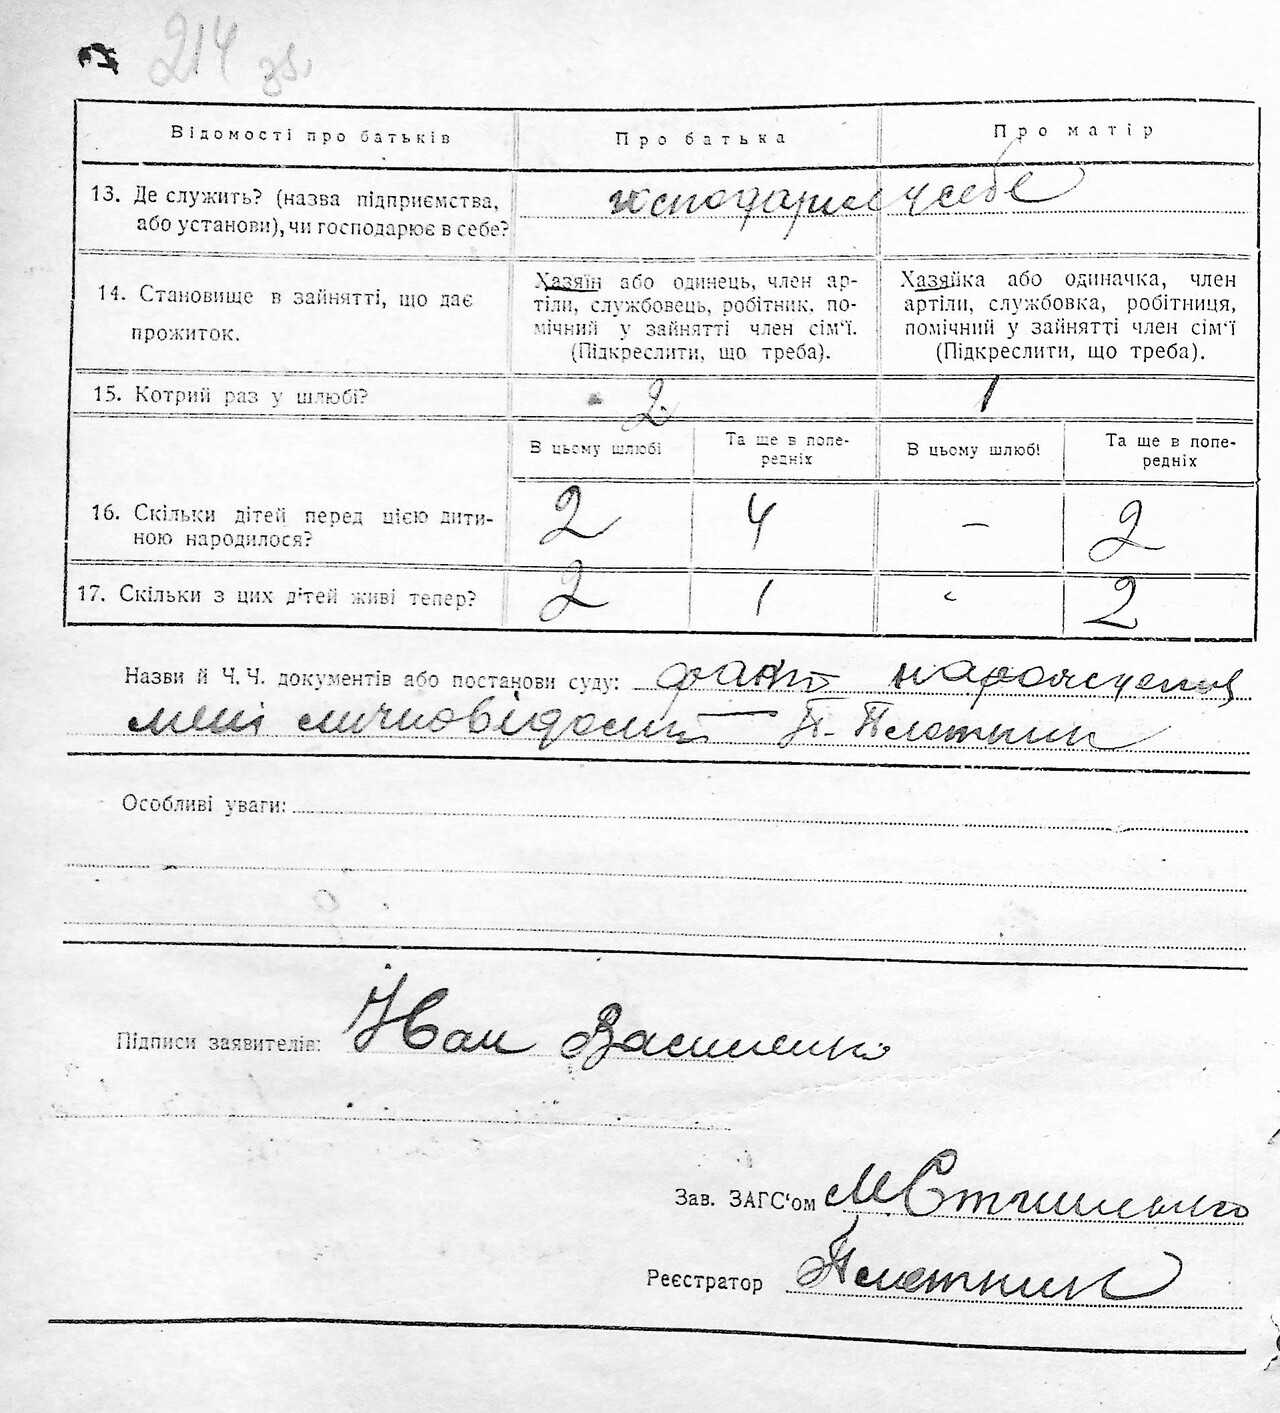 214 зв.
Відомості про батьків
Про батька
Про матір
13. Де служить? (назва підприємства,
або установи), чи господарює в себе?
господарює у себе
14. Становище в зайнятті, що дає
прожиток.
Хазяїн або одинець, член ар-
тіли, службовець, робітник, по-
мічний у зайнятті член сім'ї.
(Підкреслити, що треба).
Хазяйка або одиначка, член
артіли, службовка, робітниця,
помічний у зайнятті член сім'ї
(Підкреслити, що треба).
15. Котрий раз у шлюбі?
2
1
В цьому шлюбі
Та ще в попе-
редніх
В цьому шлюбі
Та ще в попе-
редніх
16. Скільки дітей перед цією дити-
ною народилося?
2
4
–
2
17. Скільки з цих дітей живі тепер?
2
1
2
Назви й Ч. Ч. документів або постанови суду: факт народження
мені П. Плотник
Особливі уваги:
Підписи заявителів: Іван Василенко
Зав. ЗАГС'ом
Реєстратор Плотник